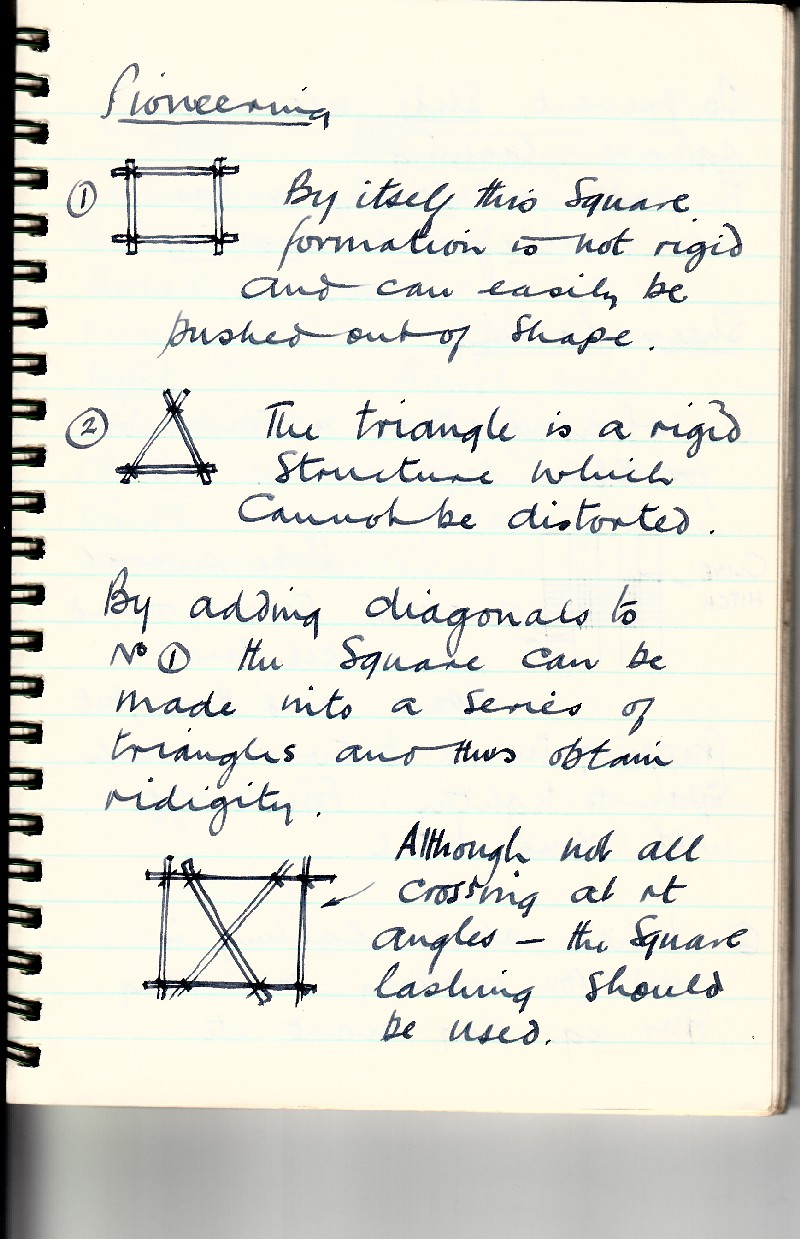 Pioneering
① By itself this Square
formation is not rigid
and can easily be
pushed out of Shape.
② The triangle is a rigid
Structure which
Cannot be distorted.
By adding diagonals to
No ① the Square can be
made into a Series of
triangles and thus obtain
ridigity.
Although not all
crossing at rt
angles – the Square
lashing Should
be used.